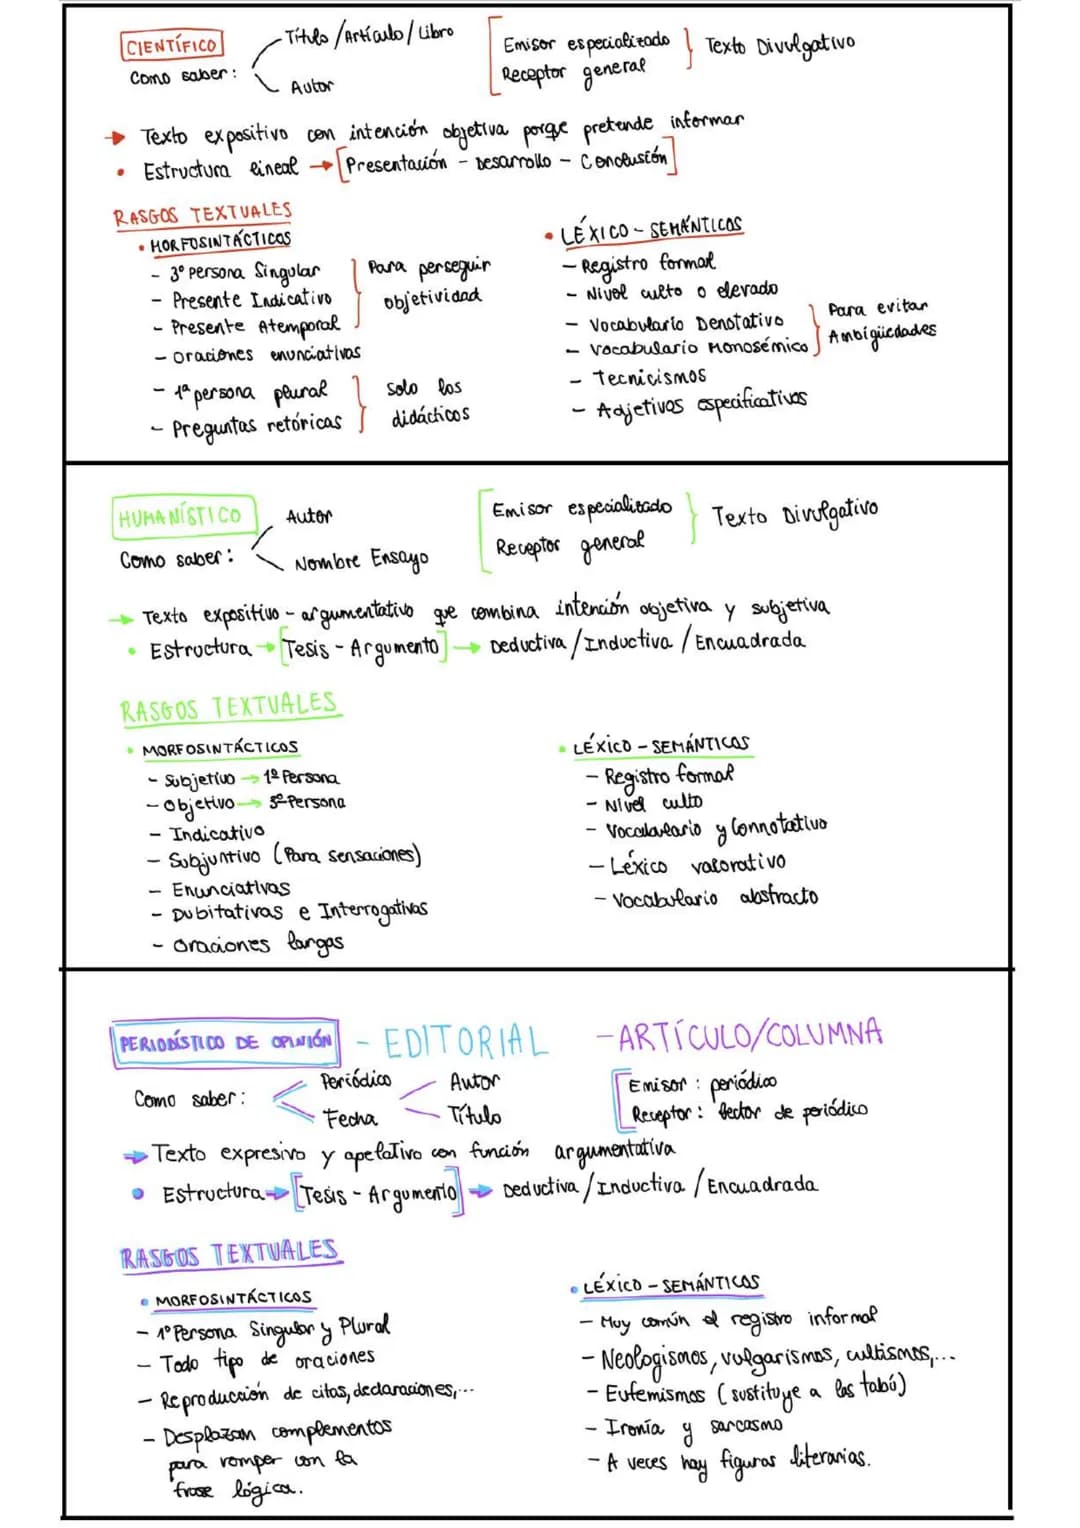 CIENTÍFICO
Como saber:
Título/Artículo/Libro
Autor
Emisor especializado
Receptor general
Texto Divulgativo
Texto expositivo con intención objetiva porqe pretende informar
Estructura lineal → [Presentación - Desarrollo - Conclusión]
RASGOS TEXTUALES
• MORFOSINTÁCTICOS
- 3º Persona Singular
- Presente Indicativo
- Presente Atemporal
Para perseguir
objetividad
- Oraciones enunciativas
- 1ª persona plural
- Preguntas retóricas
Solo los
didácticos
• LÉXICO - SEMÁNTICOS
- Registro formal
- Nivel culto o elevado
- Vocabulario Denotativo
- Vocabulario Monosémico
Para evitar
Ambigüedades
- Tecnicismos
- Adjetivos especificativos
HUMANÍSTICO
Como saber:
Autor
Nombre Ensayo
Emisor especializado
Receptor general
Texto Divulgativo
→ Texto expositivo - argumentativo que combina intención objetiva y subjetiva
• Estructura → [Tesis - Argumento] → Deductiva/Inductiva/Encuadrada
RASGOS TEXTUALES
• MORFOSINTÁCTICOS
- Subjetivo → 1º Persona
- Objetivo → 3º Persona
- Indicativo
- Subjuntivo (Para sensaciones)
- Enunciativas
- Dubitativas e Interrogativas
- Oraciones largas
• LÉXICO - SEMÁNTICOS
- Registro formal
- Nivel culto
- Vocabulario y Connotativo
- Léxico valorativo
- Vocabulario abstracto
PERIODÍSTICO DE OPINIÓN - EDITORIAL - ARTÍCULO/COLUMNA
Como saber:
Periódico
Fecha
Autor
Título
Emisor: periódico
Receptor: lector de periódico
→ Texto expresivo y apelativo con función argumentativa
• Estructura → [Tesis - Argumento] → Deductiva/Inductiva/Encuadrada
RASGOS TEXTUALES
• MORFOSINTÁCTICOS
- 1º Persona Singular y Plural
- Todo tipo de oraciones
- Reproducción de citas, declaraciones,...
- Desplazan complementos
para romper con la
frase lógica.
• LÉXICO - SEMÁNTICOS
- Muy común el registro informal
- Neologismos, vulgarismos, cultismos,...
- Eufemismos (sustituye a los tabú)
- Ironía y sarcasmo
- A veces hay figuras literarias.